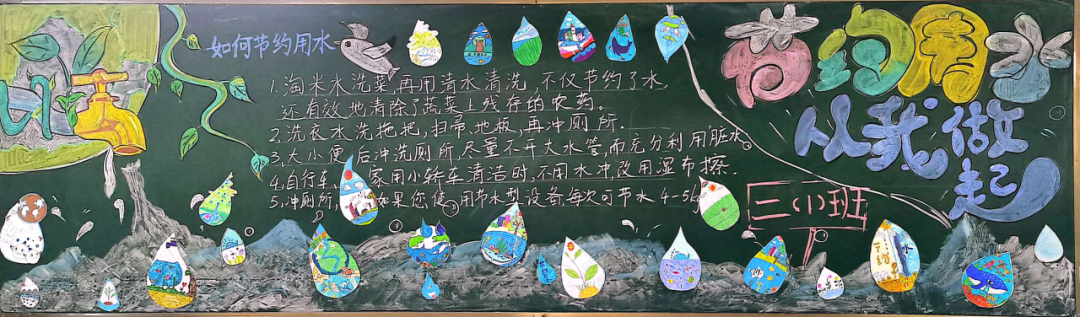 如何节约用水
1.淘米水洗菜,再用清水清洗,不仅节约了水,
还有效地清除了蔬菜上残存的农药.
2.洗衣水洗拖把,扫帚、地板,再冲厕所.
3.大小便后冲洗厕所,尽量不开大水管,而充分利用"脏水".
4.自行车、家用小轿车清洁时,不用水冲,改用湿布擦.
5.冲厕所,如果您使用节水型设备,每次可节水4-5kg
节约用水
从我做起
三(1)班